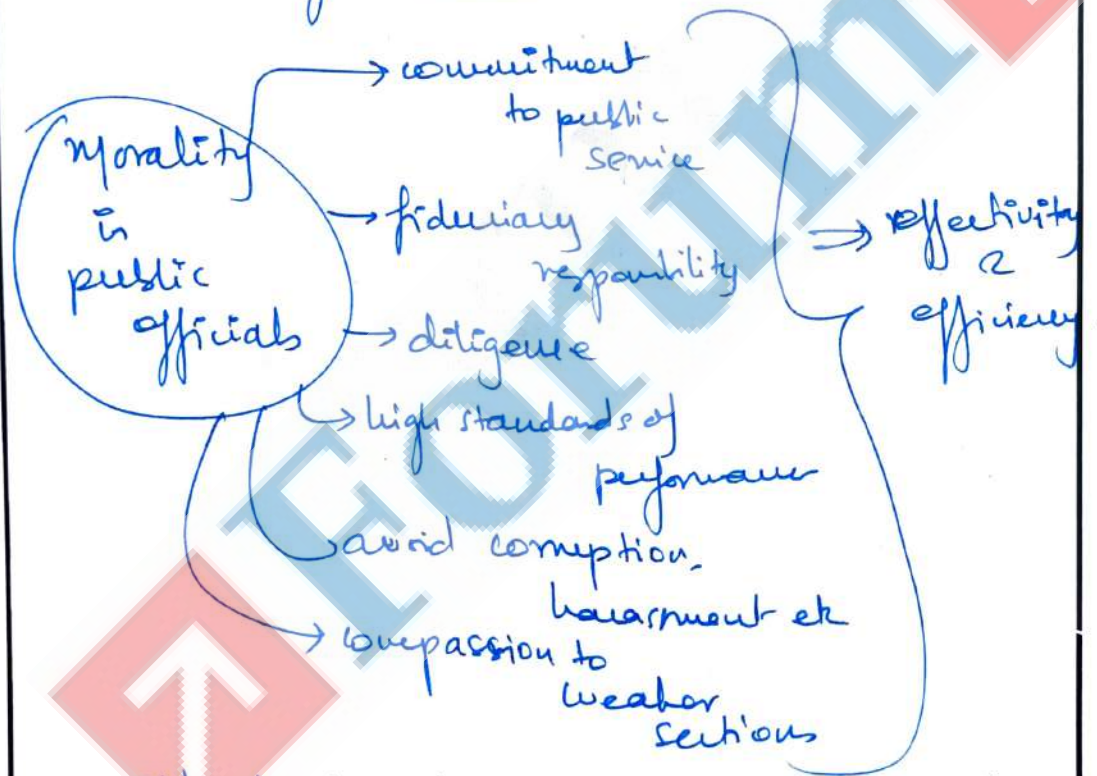 Morality
in
public
officials
→ commitment
to public
service
→ fiduciary
responsibility
→ diligence
→ high standards of
performance
avoid corruption,
harassment etc
→ compassion to
weaker
sections
⇒ effectivity
&
efficiency
Forum